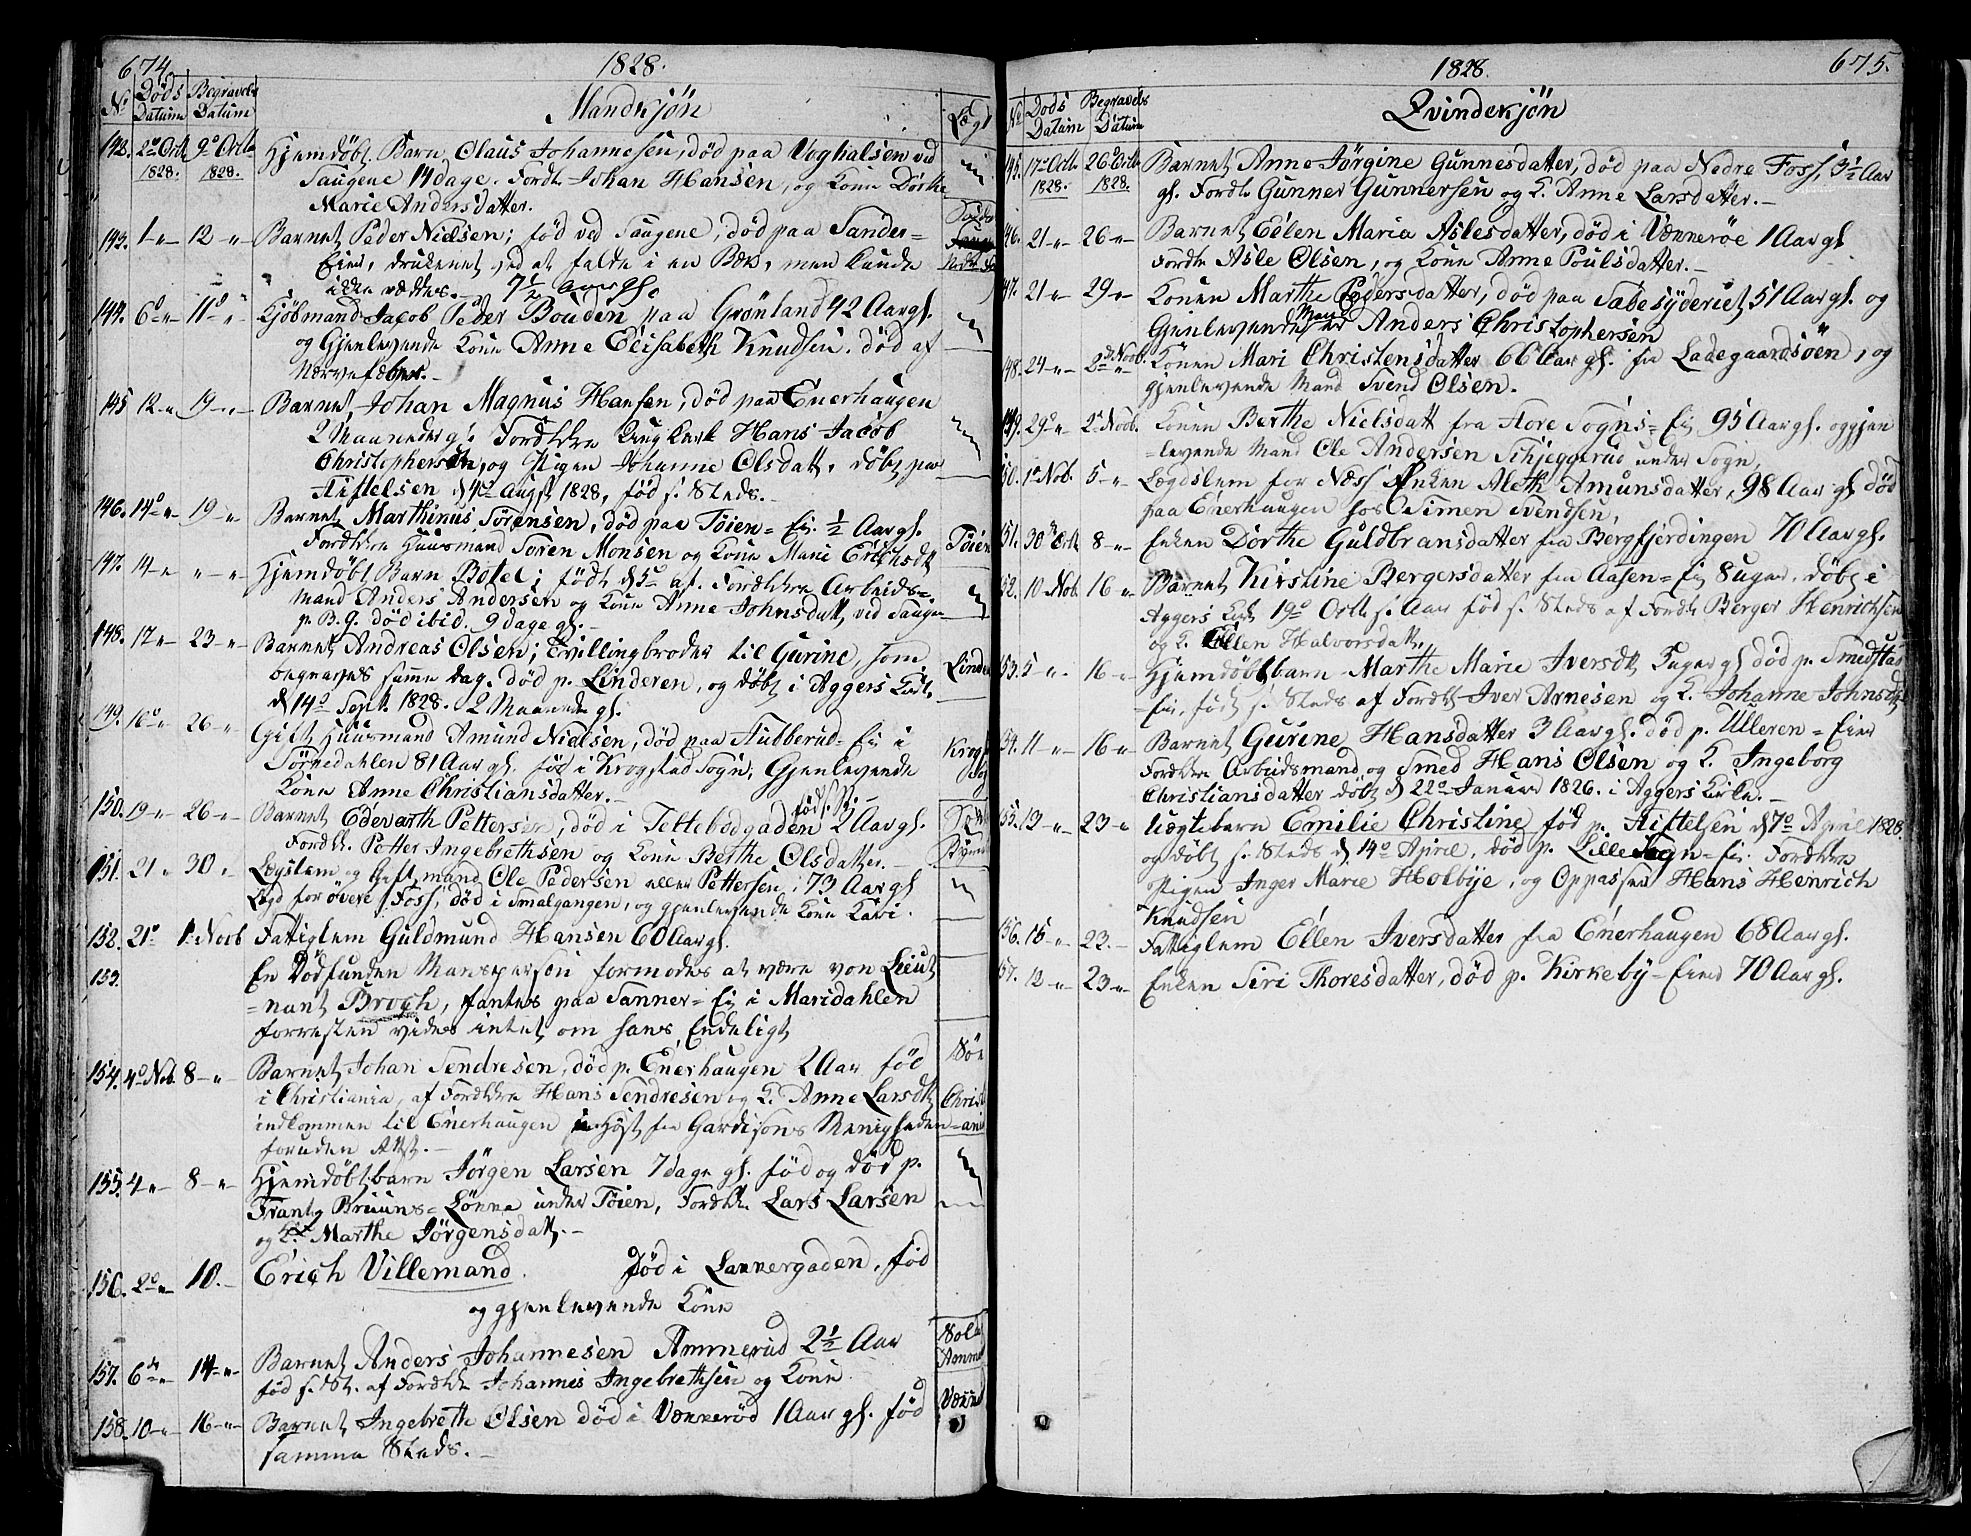 674.
1828.
No
Døds Datum
Begravels Datum
Mandkjøn
Lægd
142. 2den Octb 1828. 9de Octb 1828. Hjemdøbt Barn Olaus Johannesen, død paa Voghalsen ved
Saugene 14 dage. Fordle Johan Hansen, og Kone Dorthe
Marie Andersdatter.
143. 1-" 12-" Barnet Peder Nielsen; fød ved Saugene, død paa Sander=
Eier, druknet ved at falde i en Bæk, men kunde
ikke reddes. 7½ Aar gl.
144. 6-" 11-" Kjøbmand Jacob Peder Bouden paa Grønland 42 Aar gl.
og Gjenlevende Kone Anne Elisabeth Knudsen. død af
Nervefeber.
145 12-" 19-" Barnet Johan Magnus Hansen, død paa Enerhaugen
2 Maaneder gl. Forældre Ungkarl Hans Jacob
Christophersen, og Pigen Johanne Olsdatt. døbt paa
Stiftelsen d 4de Augst 1828, fød s. Steds.
146. 14-" 19-" Barnet Marthinus Sørensen, død paa Tøien=Ei. ½ Aar gl.
Forældre Huusmand Søren Monsen og Kone Mari Erichsdtt
Tøien
147. 14-" "-" Hjemdøbt Barn Botel; født d 5te af Forældre Arbeids=
mand Anders Andersen og Kone Anne Johnsdatt. ved Sauge
p. B. G. død ibid. 9 dage gl.
148. 17-" 23-" Barnet Andreas Olsen; Tvillingbroder til Gurine, som
begraves samme dag. død p. Linderen, og døbt i Aggers Kirke
d 14de Sept. 1828. 2 Maaneder gl.
149. 16-" 26-" Gift Huusmand Amund Nielsen, død paa Stubberud=Ei i
Sørkedahlen 81 Aar gl. fød i Krogstad Sogn; Gjenlevende
Kone Anne Christiansdatter.
150. 19-" 26-" Barnet Edevarth Pettersen, død i Tettebodgaden fød s. St. 2 Aar gl.
Fordle. Petter Ingebrethsen og Kone Berthe Olsdatter.
151. 21-" 30-" Lægslem og Gift mand Ole Pedersen eller Pettersen, 73 Aar gl
Lægd for øvere Foss, død i Smalgangen, og gjenlevende Kone Kari.
152. 21de 1. Novb Fattiglem Guldmund Hansen 60 Aar gl.
153. En Dødfunden Mansperson formodes at være von Lieut
=nant Brogh, fantes paa Sanner=Ei i Maridahlen
forresten vides intet om hans Endeligt
154. 4de Nob. 8-" Barnet Johan Sendresen, død p. Enerhaugen 2 Aar fød
i Christiania, af Forældre Hans Sendresen og K. Anne Larsdtt
indkommen til Enerhaugen i Høst fra Gardisons Menigheden
foruden Attst.
155. 4-" 8-" Hjemdøbt barn Jørgen Larsen 7 dage gl. fød og død p.
Frantz Bruuns=Løkke under Tøien, Fordle. Lars Larsen
og K. Marthe Jørgensdatt.
156. 2de-" 10.- Erich Villemand. død i Lakkergaden, fød
og gjenlevende Kone
157. 6de-" 14-" Barnet Anders Johannesen Ammerud 2½ Aar
fød s. St. af Forældre Johannes Ingebrethsen og Kone
158. 10-" 16-" Barnet Ingebreth Olsen død i Vækkerød 1 Aar gl. fød
samme Steds.
1828.
675.
No
Døds Datum
Begravels Datum
Qvindekjøn
145. 17de Octb 1828. 26de Octb 1828. Barnet Anne Jørgine Gunnesdatter, død paa Nedre Foss, 3½ Aar
gl. Fordle Gunner Gunnersen og K. Anne Larsdatter.
146. 21-" 26-" Barnet Eelen Maria Aslesdatter, død i Vækkerøe 1 Aar gl
Fordle Asle Olsen, og Kone Anne Poulsdatter.
147. 21-" 29-" Konen Marthe Pedersdatter, død paa Sabesyderiet 51 Aar gl. og
Gjenlevende Mand er Anders Christophersen
148. 24-" 2den Novb. Konen Mari Christensdatter 66 Aar gl. fra Ladegaardsøen, og
gjenlevende Mand Svend Olsen.
149. 29-" 2den Novb. Konen Berthe Nielsdatt fra Store Sogns=Ei 95 Aar gl. og gjen
=levende Mand Ole Andersen Schjeggerud under Sogn,
150. 1ste Nob. 5-" Lægdslem for Næss Enken Aleth Amunsdatter, 98 Aar gl død
paa Enerhaugen hos Simen Svendsen,
151. 30te Octb 8-" Enken Dorthe Guldbransdatter fra Bergfjerdingen 70 Aar gl.
152. 10 Nob. 16-" Barnet Kirstine Bergersdatter fra Aasen=Ei 8 uger, døbt i
Aggers Kirke 19de Octb s. Aar fød s. Steds af Fordle Berger Henrichsen
og K. Ellen Halvorsdatt.
153. 5-" 16-" Hjemdøbt barn Marthe Marie Iversdtt, 3 uger gl død p. Smedstad
=Ei, født s. Steds af Fordle Iver Arnesen og K. Johanne Johnsdtt
154. 11-" 16-" Barnet Gurine Hansdatter 3 Aar gl. død p. Ulleren=Eier
Forældre Arbeidsmand og Smed Hans Olsen og K. Ingeborg
Christiansdatter døbt d 22de Januar 1826. i Aggers Kirke.
155. 13-" 23-" Uægtebarn Emilie Christine fød p. Stiftelsen d 7de April 1828
og døbt s. Steds d 14de April, død p. Lille Sogn=Ei. Forældre
Pigen Inger Marie Holbye, og Oppasser Hans Henrich
Knudsen
156. 15-" 23.- Fattiglem Ellen Iversdatter fra Enerhaugen 68 Aar gl.
157. 12-" 23-" Enken Siri Thoresdatter, død p. Kirkeby=Eier 70 Aar gl.